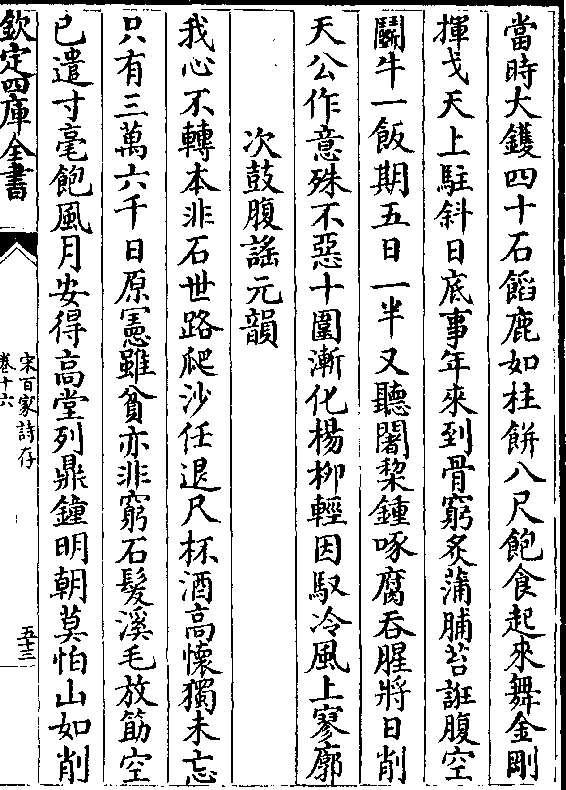 當時大鑊四十石饀鹿如柱餅八尺飽食起來舞金剛
揮戈天上駐斜日底事年來到骨窮炙蒲脯苔誑腹空
鬭牛一飯期五日一半又聽闍棃鍾啄腐吞腥將日削
天公作意殊不惡十圍漸化楊柳輕因馭冷風上寥廓
次鼓腹謡元韻
我心不轉本非石世路爬沙任退尺杯酒高懷獨未忘
只有三萬六千日原憲雖貧亦非窮石髮溪毛放筯空
已遣寸毫飽風月安得高堂列鼎鐘明朝莫怕山如削
欽定四庫全書
宋百家詩存
卷十六
五十三